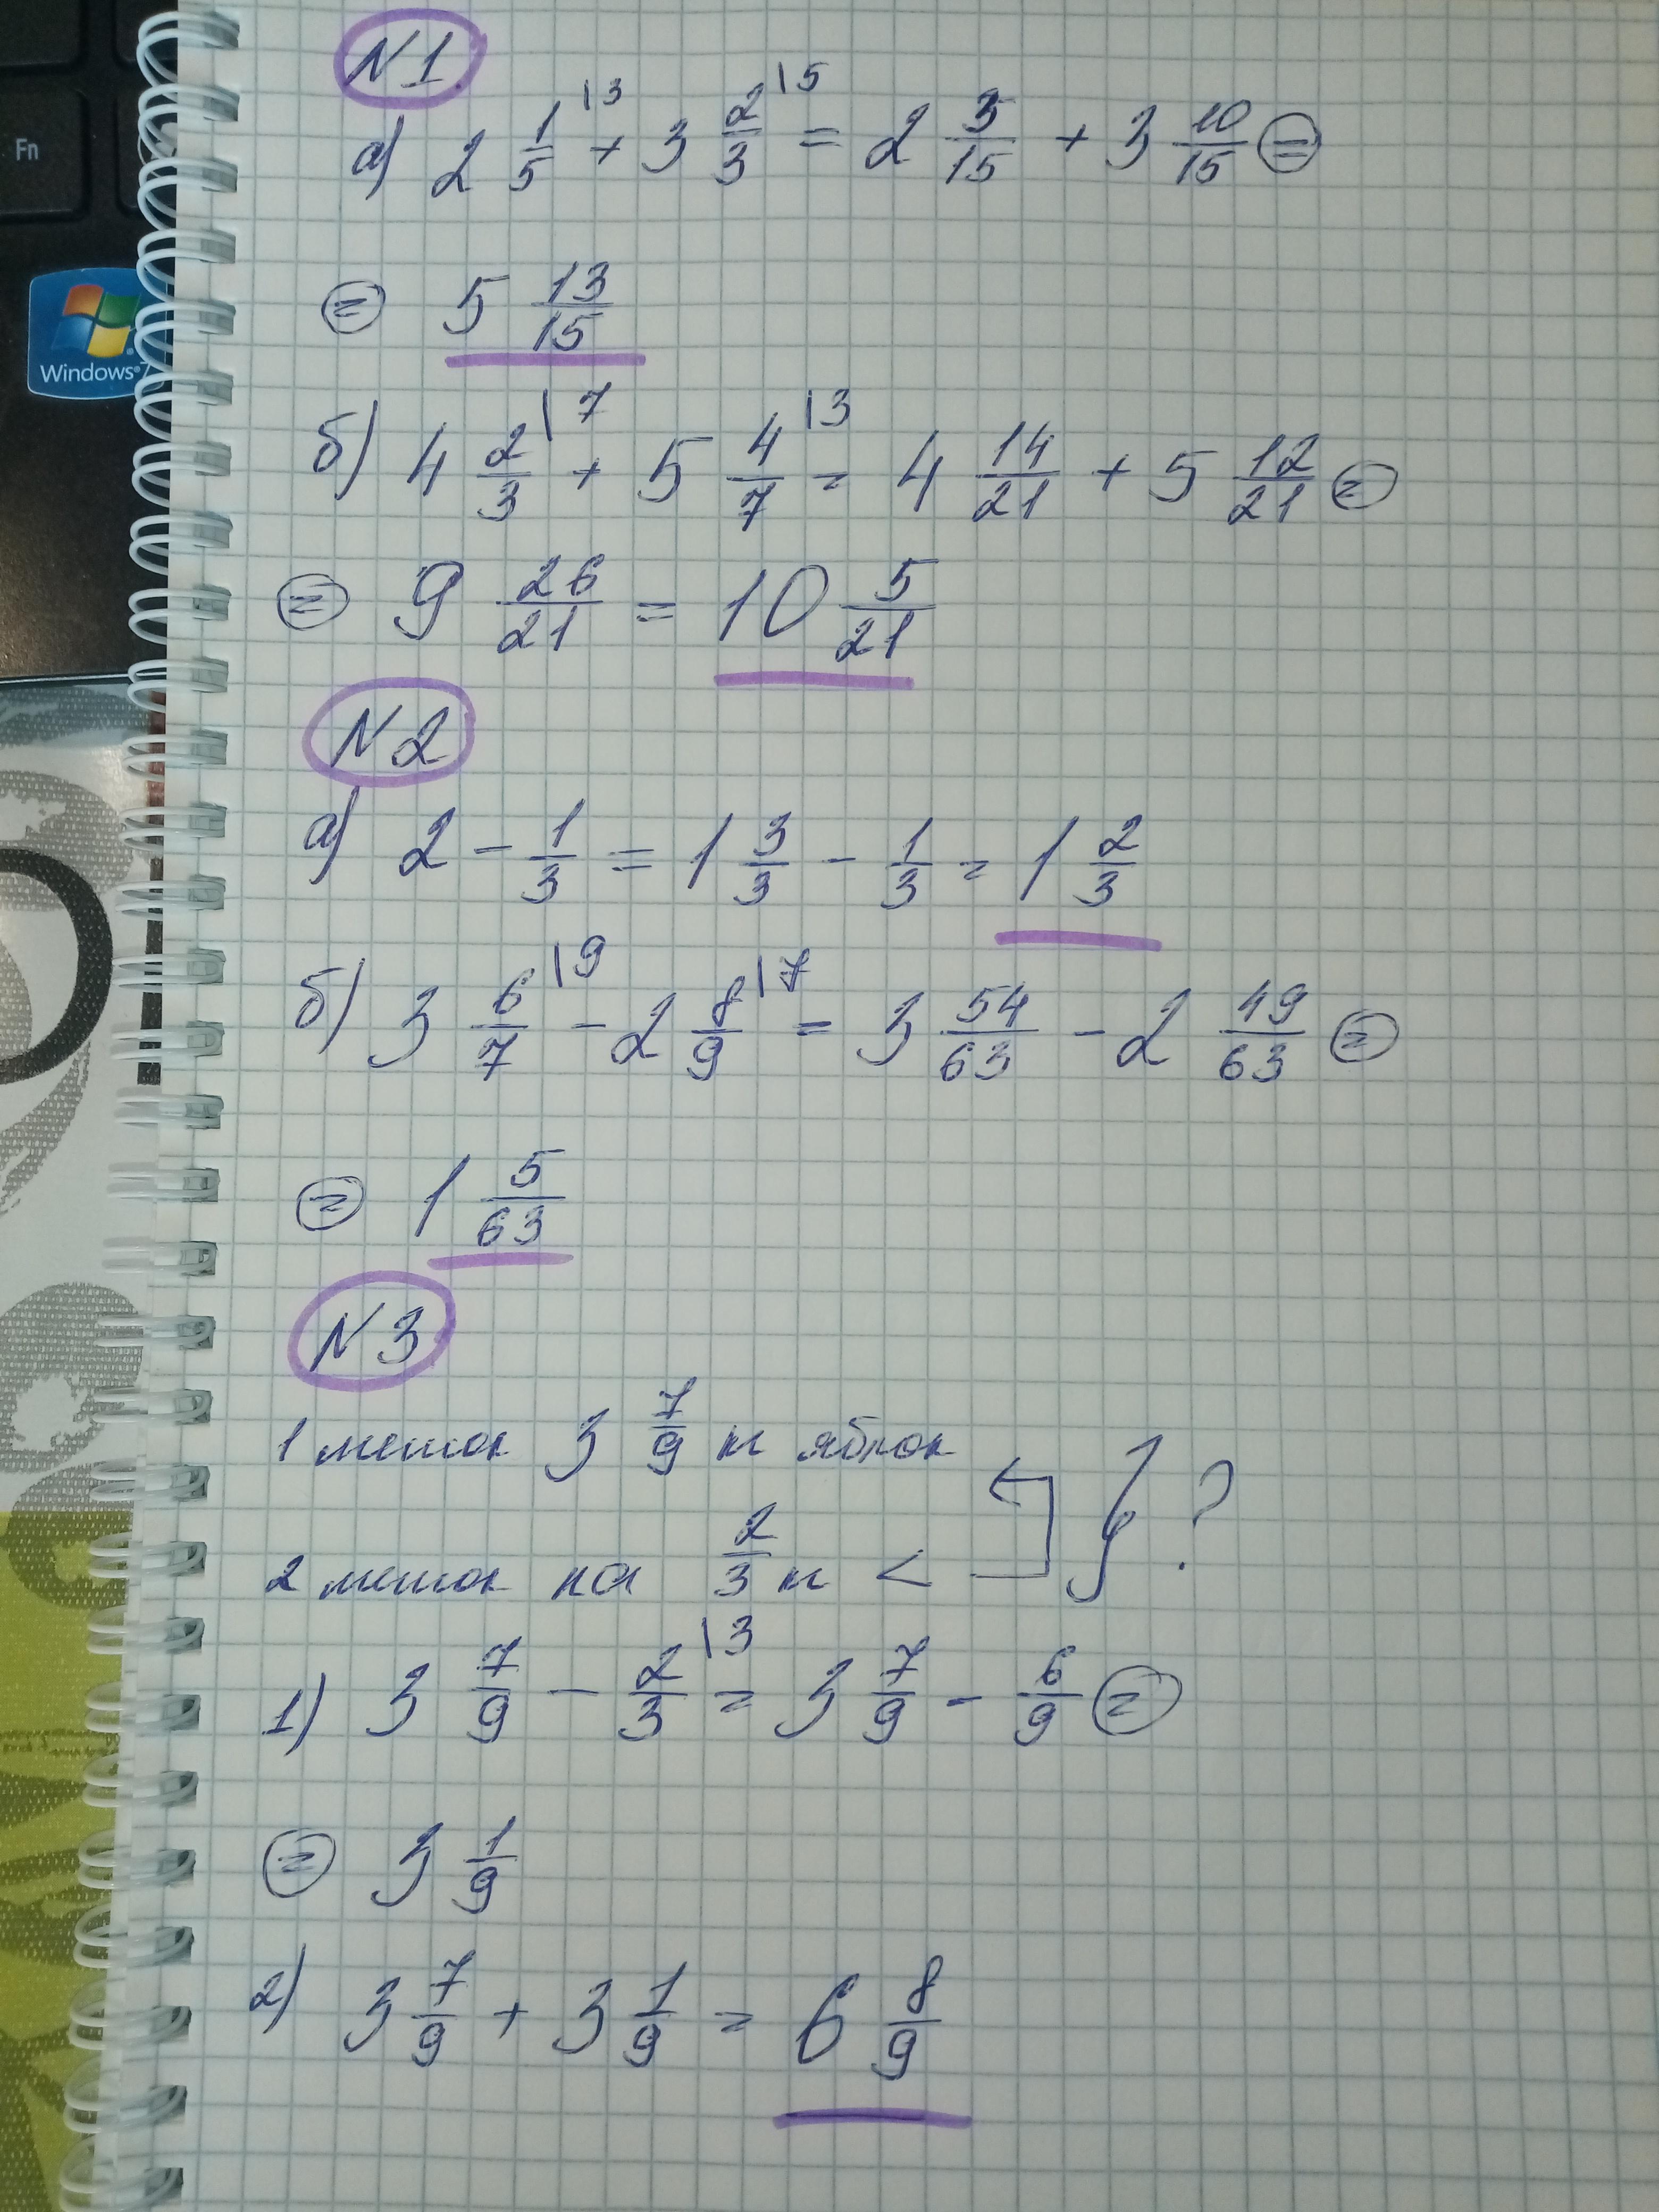 Fn
Windows 7
N 1
а) 2 1/5 \3 + 3 2/3 \5 = 2 3/15 + 3 10/15 =
= 5 13/15
б) 4 2/3 \7 + 5 4/7 \3 = 4 14/21 + 5 12/21 =
= 9 26/21 = 10 5/21
N 2
а) 2 - 1/3 = 1 3/3 - 1/3 = 1 2/3
б) 3 6/7 \9 - 2 8/9 \7 = 3 54/63 - 2 49/63 =
= 1 5/63
N 3
1 мешок 3 7/9 кг яблок
2 мешок на 2/3 кг < } ?
1) 3 7/9 - 2/3 \3 = 3 7/9 - 6/9 =
= 3 1/9
2) 3 7/9 + 3 1/9 = 6 8/9